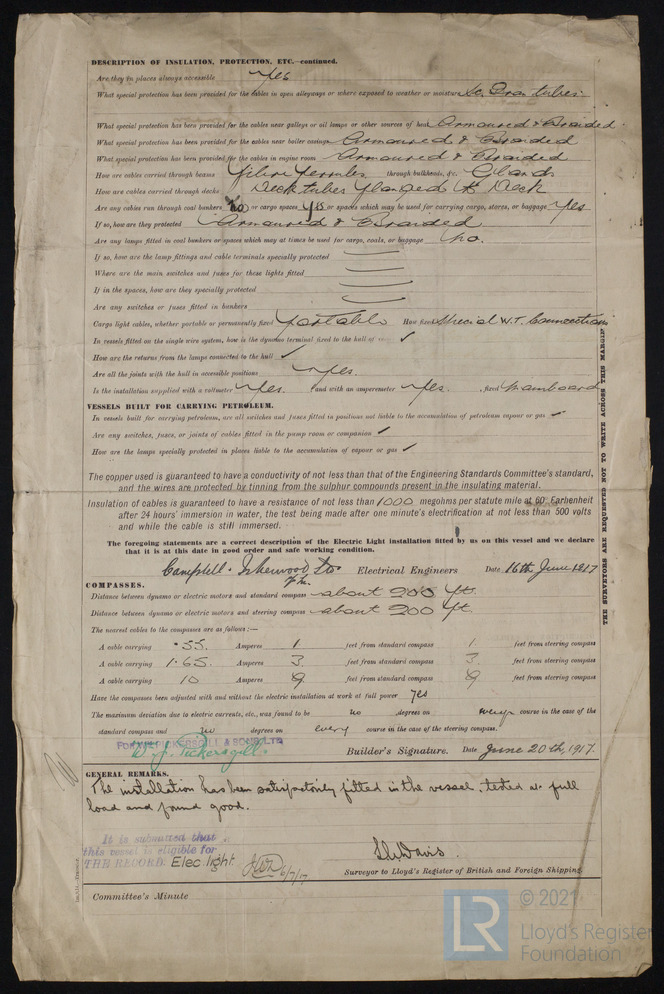 DESCRIPTION OF INSULATION, PROTECTION, ETC.—continued.
Are they in places always accessible Yes
What special protection has been provided for the cables in open alleyways or where exposed to weather or moisture tubes
What special protection has been provided for the cables near galleys or oil lamps or other sources of heat Armoured & Braided
What special protection has been provided for the cables near boiler casings Armoured & Braided
What special protection has been provided for the cables in engine room Armoured & Braided
How are cables carried through beams Fibre Ferrules through bulkheads, &c. Glands
How are cables carried through decks Deck tubes flanged to Deck
Are any cables run through coal bunkers No or cargo spaces Yes or spaces which may be used for carrying cargo, stores, or baggage Yes
If so, how are they protected Armoured & Braided
Are any lamps fitted in coal bunkers or spaces which may at times be used for cargo, coals, or baggage No.
If so, how are the lamp fittings and cable terminals specially protected
Where are the main switches and fuses for these lights fitted
If in the spaces, how are they specially protected
Are any switches or fuses fitted in bunkers
Cargo light cables, whether portable or permanently fixed Portable How fixed Special W.T. Connections
In vessels fitted on the single wire system, how is the dynamo terminal fixed to the hull of vessel ✓
How are the returns from the lamps connected to the hull ✓
Are all the joints with the hull in accessible positions Yes.
Is the installation supplied with a voltmeter Yes. and with an amperemeter Yes. fixed Mainboard
VESSELS BUILT FOR CARRYING PETROLEUM.
In vessels built for carrying petroleum, are all switches and fuses fitted in positions not liable to the accumulation of petroleum vapour or gas ✓
Are any switches, fuses, or joints of cables fitted in the pump room or companion ✓
How are the lamps specially protected in places liable to the accumulation of vapour or gas ✓
The copper used is guaranteed to have a conductivity of not less than that of the Engineering Standards Committee's standard,
and the wires are protected by tinning from the sulphur compounds present in the insulating material.
Insulation of cables is guaranteed to have a resistance of not less than 1000 megohms per statute mile at 60° Farhenheit
after 24 hours' immersion in water, the test being made after one minute's electrification at not less than 500 volts
and while the cable is still immersed.
The foregoing statements are a correct description of the Electric Light installation fitted by us on this vessel and we declare
that it is at this date in good order and safe working condition.
Campbell & Isherwood Ltd Electrical Engineers Date 16th June 1917
COMPASSES.
Distance between dynamo or electric motors and standard compass about 200 ft.
Distance between dynamo or electric motors and steering compass about 200 ft.
The nearest cables to the compasses are as follows:—
A cable carrying .55 Amperes 1 feet from standard compass 1 feet from steering compass
A cable carrying 1.65 Amperes 3 feet from standard compass 3 feet from steering compass
A cable carrying 10 Amperes 9 feet from standard compass 9 feet from steering compass
Have the compasses been adjusted with and without the electric installation at work at full power yes
The maximum deviation due to electric currents, etc., was found to be no degrees on every course in the case of the
standard compass and no degrees on every course in the case of the steering compass.
FOR WM PICKERSGILL & SONS, LTD
W. J. Pickersgill Builder's Signature. Date June 20th, 1917.
GENERAL REMARKS.
The installation has been satisfactorily fitted in the vessel, tested at full
load and found good.
It is submitted that
this vessel is eligible for
THE RECORD. Elec light 6/7/17
Davis.
Surveyor to Lloyd's Register of British and Foreign Shipping.
Committee's Minute
THE SURVEYORS ARE REQUESTED NOT TO WRITE ACROSS THIS MARGIN.
LR
© 2021
Lloyd's Register
Foundation